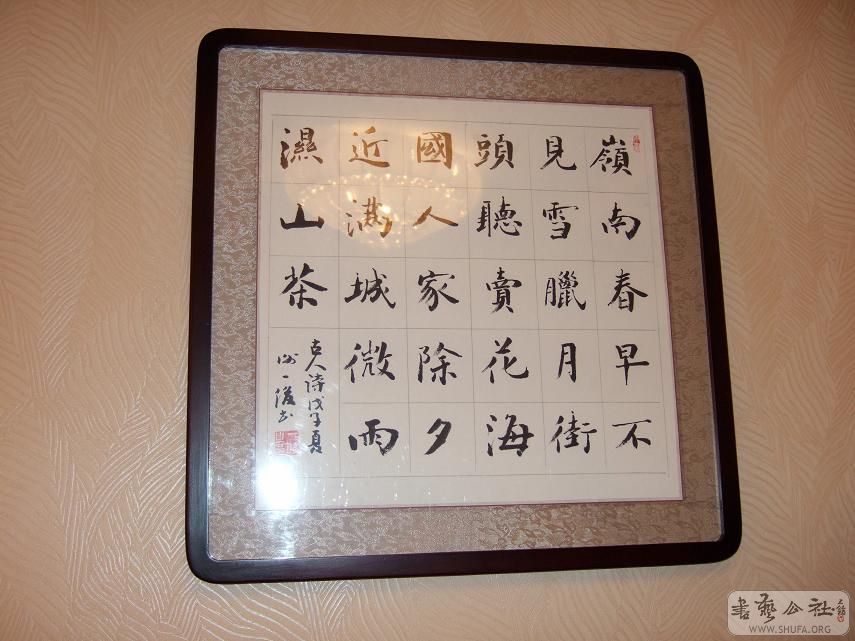 嶺南春早不
見雪臘月街
頭聽賣花海
國人家除夕
近滿城微雨
濕山茶
古人詩戊子夏
書藝公社
WWW.SHUFA.ORG